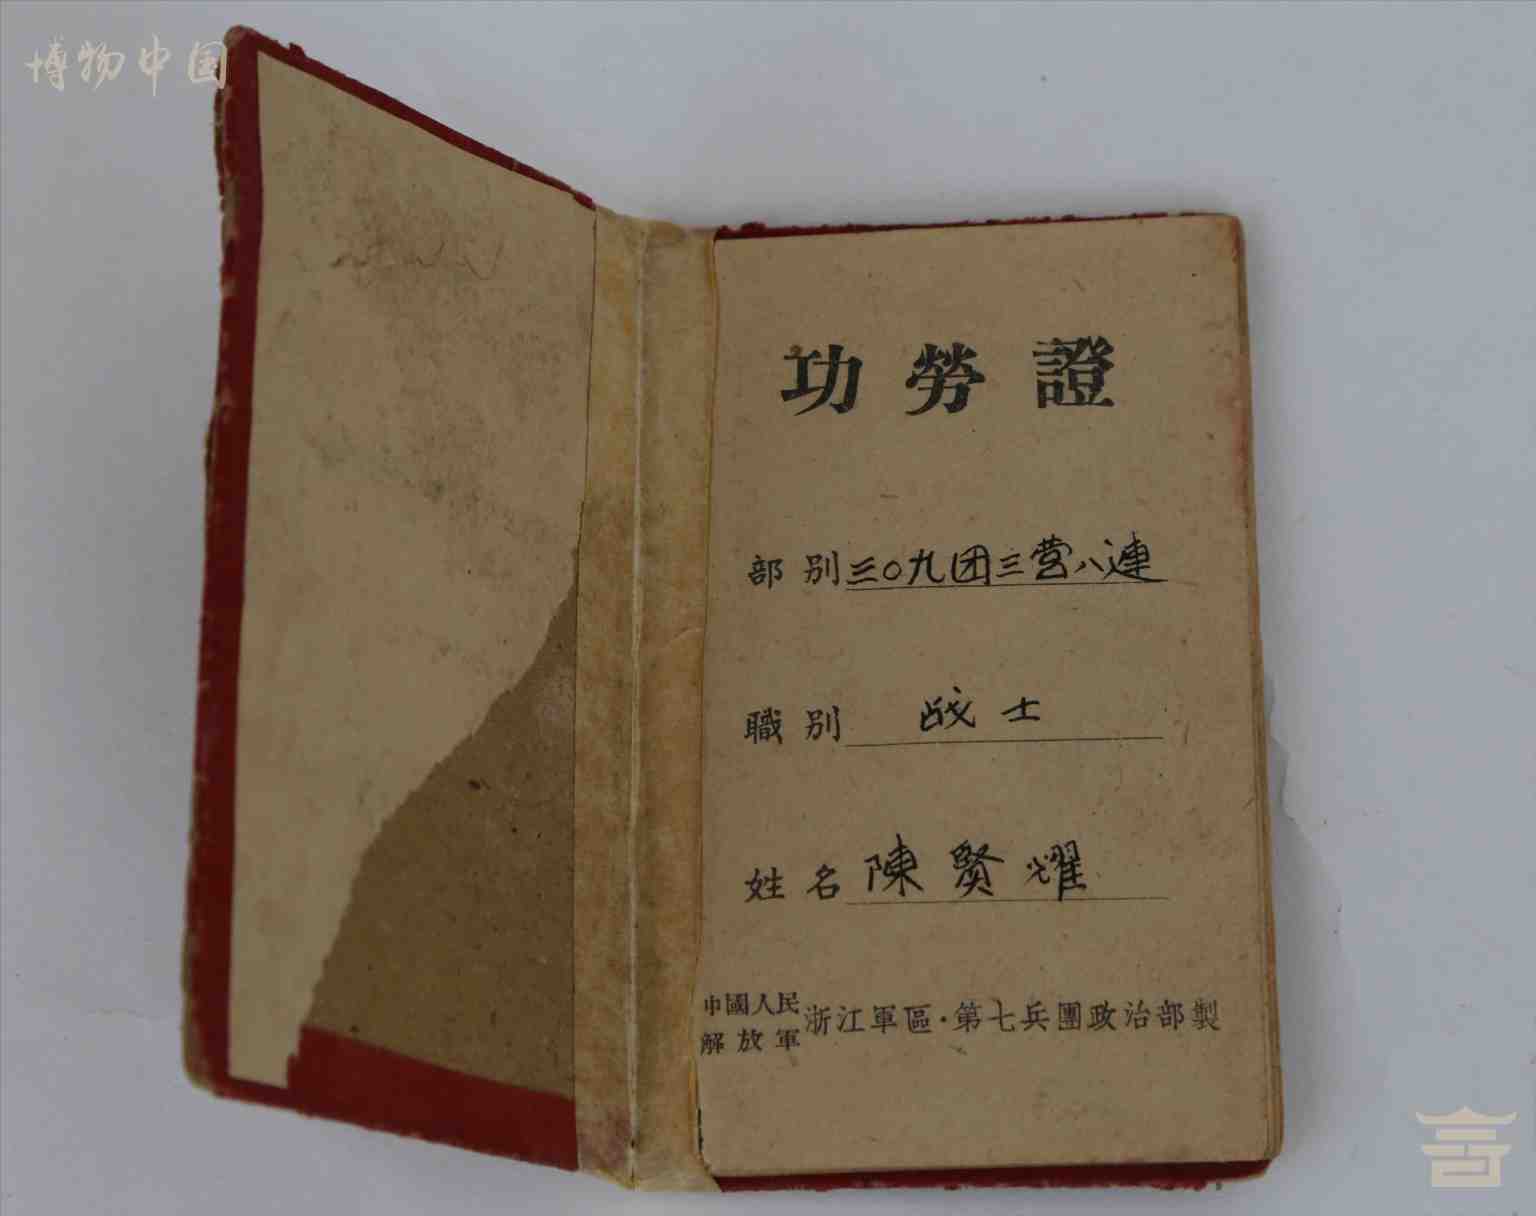 博物中国
功勞證
部别三〇九团三营八連
職别 战士
姓名 陳賢耀
中國人民
解放軍
浙江軍區·第七兵團政治部製